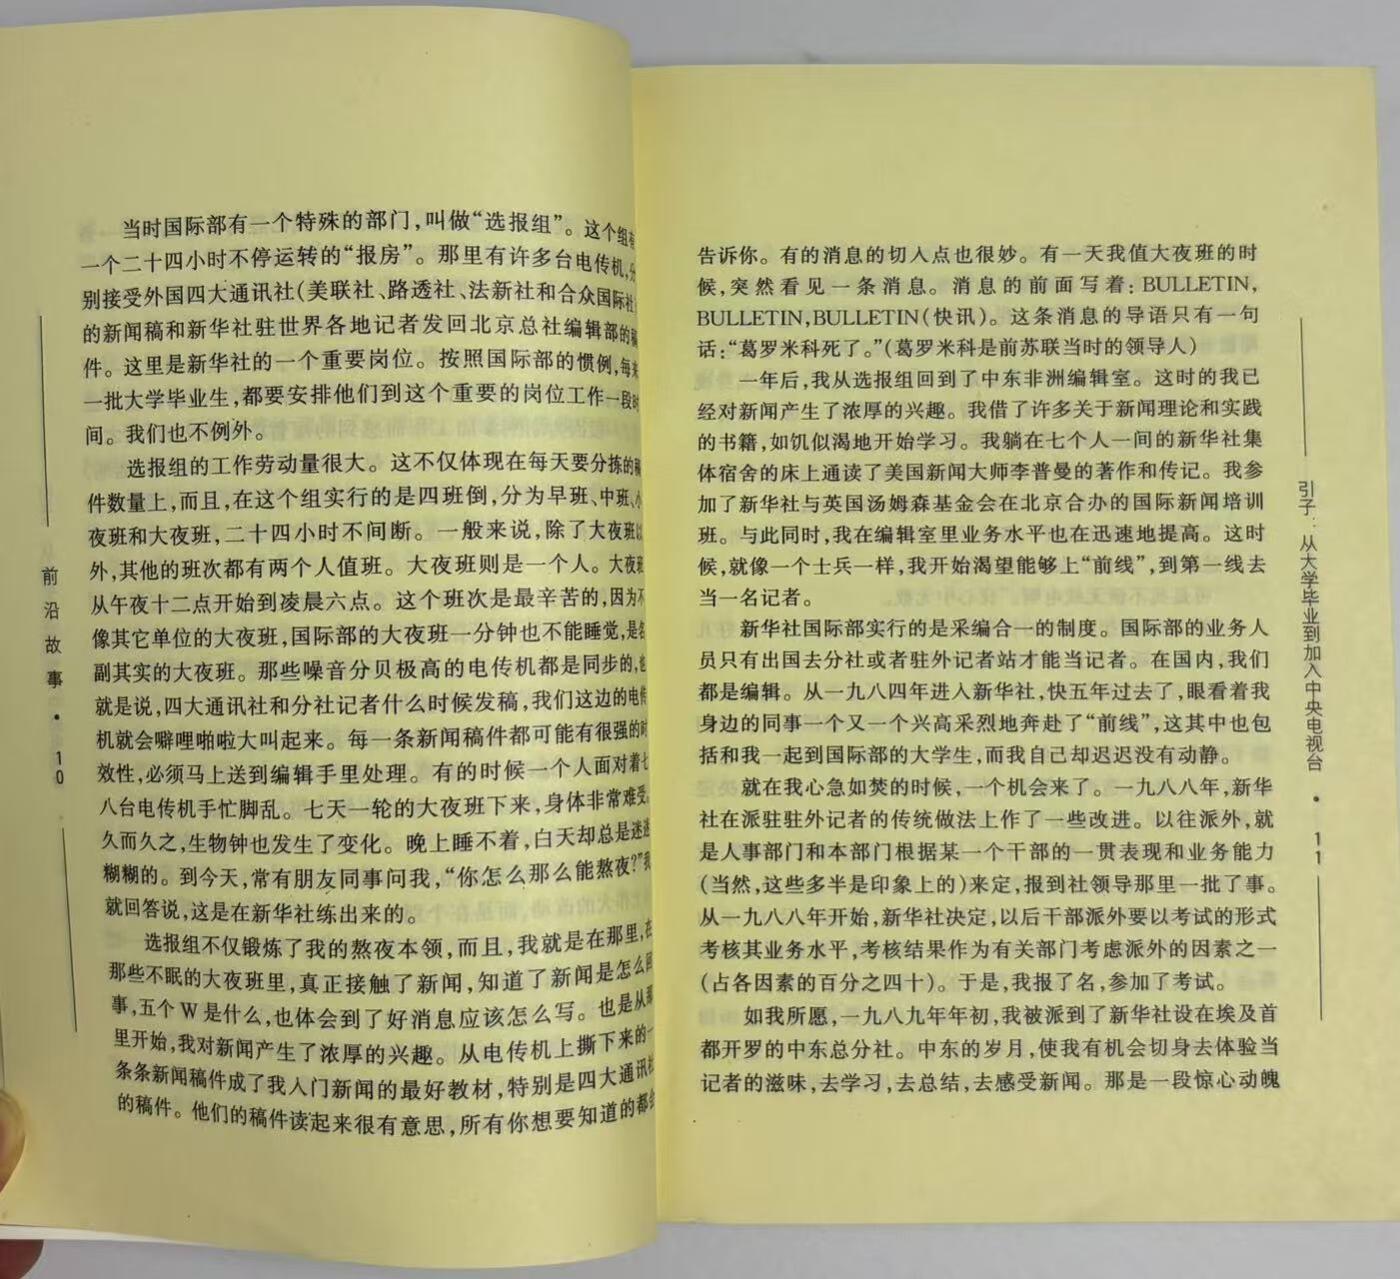 当时国际部有一个特殊的部门，叫做“选报组”。这个组有
一个二十四小时不停运转的“报房”。那里有许多台电传机，分
别接受外国四大通讯社(美联社、路透社、法新社和合众国际社)
的新闻稿和新华社驻世界各地记者发回北京总社编辑部的稿
件。这里是新华社的一个重要岗位。按照国际部的惯例，每来
一批大学毕业生，都要安排他们到这个重要的岗位工作一段时
间。我们也不例外。
选报组的工作劳动量很大。这不仅体现在每天要分拣的稿
件数量上，而且，在这个组实行的是四班倒，分为早班、中班、小
夜班和大夜班，二十四小时不间断。一般来说，除了大夜班以
外，其他的班次都有两个人值班。大夜班则是一个人。大夜班
从午夜十二点开始到凌晨六点。这个班次是最辛苦的，因为不
像其它单位的大夜班，国际部的大夜班一分钟也不能睡觉，是名
副其实的大夜班。那些噪音分贝极高的电传机都是同步的，也
就是说，四大通讯社和分社记者什么时候发稿，我们这边的电传
机就会噼哩啪啦大叫起来。每一条新闻稿件都可能有很强的时
效性，必须马上送到编辑手里处理。有的时候一个人面对着七
八台电传机手忙脚乱。七天一轮的大夜班下来，身体非常难受。
久而久之，生物钟也发生了变化。晚上睡不着，白天却总是迷迷
糊糊的。到今天，常有朋友同事问我，“你怎么那么能熬夜?”我
就回答说，这是在新华社练出来的。
选报组不仅锻炼了我的熬夜本领，而且，我就是在那里，在
那些不眠的大夜班里，真正接触了新闻，知道了新闻是怎么回
事，五个W是什么，也体会到了好消息应该怎么写。也是从那
里开始，我对新闻产生了浓厚的兴趣。从电传机上撕下来的一
条条新闻稿件成了我入门新闻的最好教材，特别是四大通讯社
的稿件。他们的稿件读起来很有意思，所有你想要知道的都会
前沿故事·10
告诉你。有的消息的切入点也很妙。有一天我值大夜班的时
候，突然看见一条消息。消息的前面写着：BULLETIN,
BULLETIN,BULLETIN(快讯)。这条消息的导语只有一句
话：“葛罗米科死了。”(葛罗米科是前苏联当时的领导人)
一年后，我从选报组回到了中东非洲编辑室。这时的我已
经对新闻产生了浓厚的兴趣。我借了许多关于新闻理论和实践
的书籍，如饥似渴地开始学习。我躺在七个人一间的新华社集
体宿舍的床上通读了美国新闻大师李普曼的著作和传记。我参
加了新华社与英国汤姆森基金会在北京合办的国际新闻培训
班。与此同时，我在编辑室里业务水平也在迅速地提高。这时
候，就像一个士兵一样，我开始渴望能够上“前线”，到第一线去
当一名记者。
新华社国际部实行的是采编合一的制度。国际部的业务人
员只有出国去分社或者驻外记者站才能当记者。在国内，我们
都是编辑。从一九八四年进入新华社，快五年过去了，眼看着我
身边的同事一个又一个兴高采烈地奔赴了“前线”，这其中也包
括和我一起到国际部的大学生，而我自己却迟迟没有动静。
就在我心急如焚的时候，一个机会来了。一九八八年，新华
社在派驻驻外记者的传统做法上作了一些改进。以往派外，就
是人事部门和本部门根据某一个干部的一贯表现和业务能力
(当然，这些多半是印象上的)来定，报到社领导那里一批了事。
从一九八八年开始，新华社决定，以后干部派外要以考试的形式
考核其业务水平，考核结果作为有关部门考虑派外的因素之一
(占各因素的百分之四十)。于是，我报了名，参加了考试。
如我所愿，一九八九年年初，我被派到了新华社设在埃及首
都开罗的中东总分社。中东的岁月，使我有机会切身去体验当
记者的滋味，去学习，去总结，去感受新闻。那是一段惊心动魄
引子：从大学毕业到加入中央电视台·11